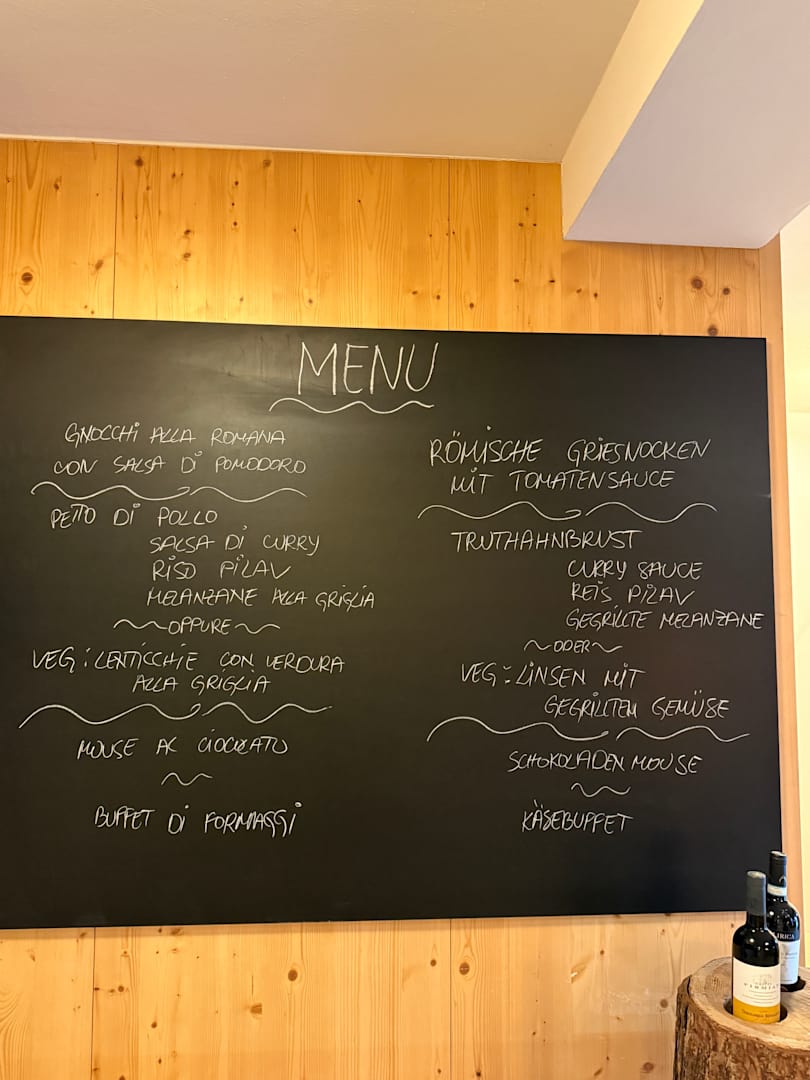 MENU
GNOCCHI ALLA ROMANA
CON SALSA DI POMODORO
PETTO DI POLLO
SALSA DI CURRY
RISO PILAV
MELANZANE ALLA GRIGLIA
OPPURE
VEG: LENTICCHIE CON VERDURA
ALLA GRIGLIA
MOUSE AL CIOCCLATO
BUFFET DI FORMAGGI
RÖMISCHE GRIESNOCKEN
MIT TOMATENSAUCE
TRUTHAHNBRUST
CURRY SAUCE
REIS PILAV
GEGRILLTE MELANZANE
ODER
VEG: LINSEN MIT
GEGRILLTEM GEMÜSE
SCHOKOLADEN MOUSE
KÄSEBUFFET
LIRICA